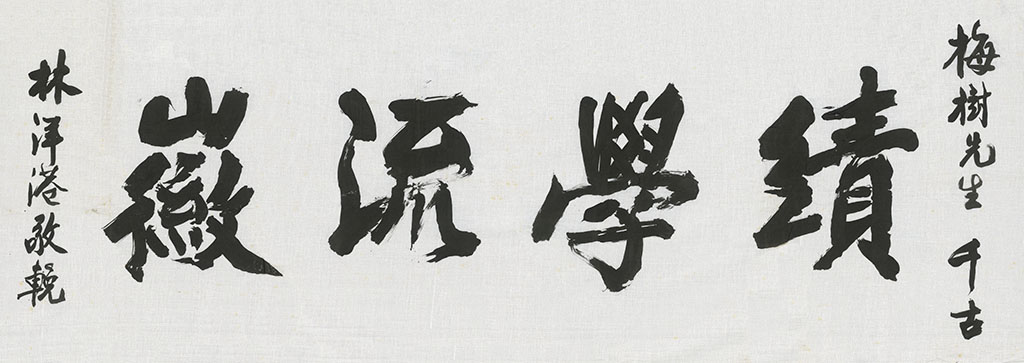 梅樹先生 千古
績學流徽
林洋港敬輓